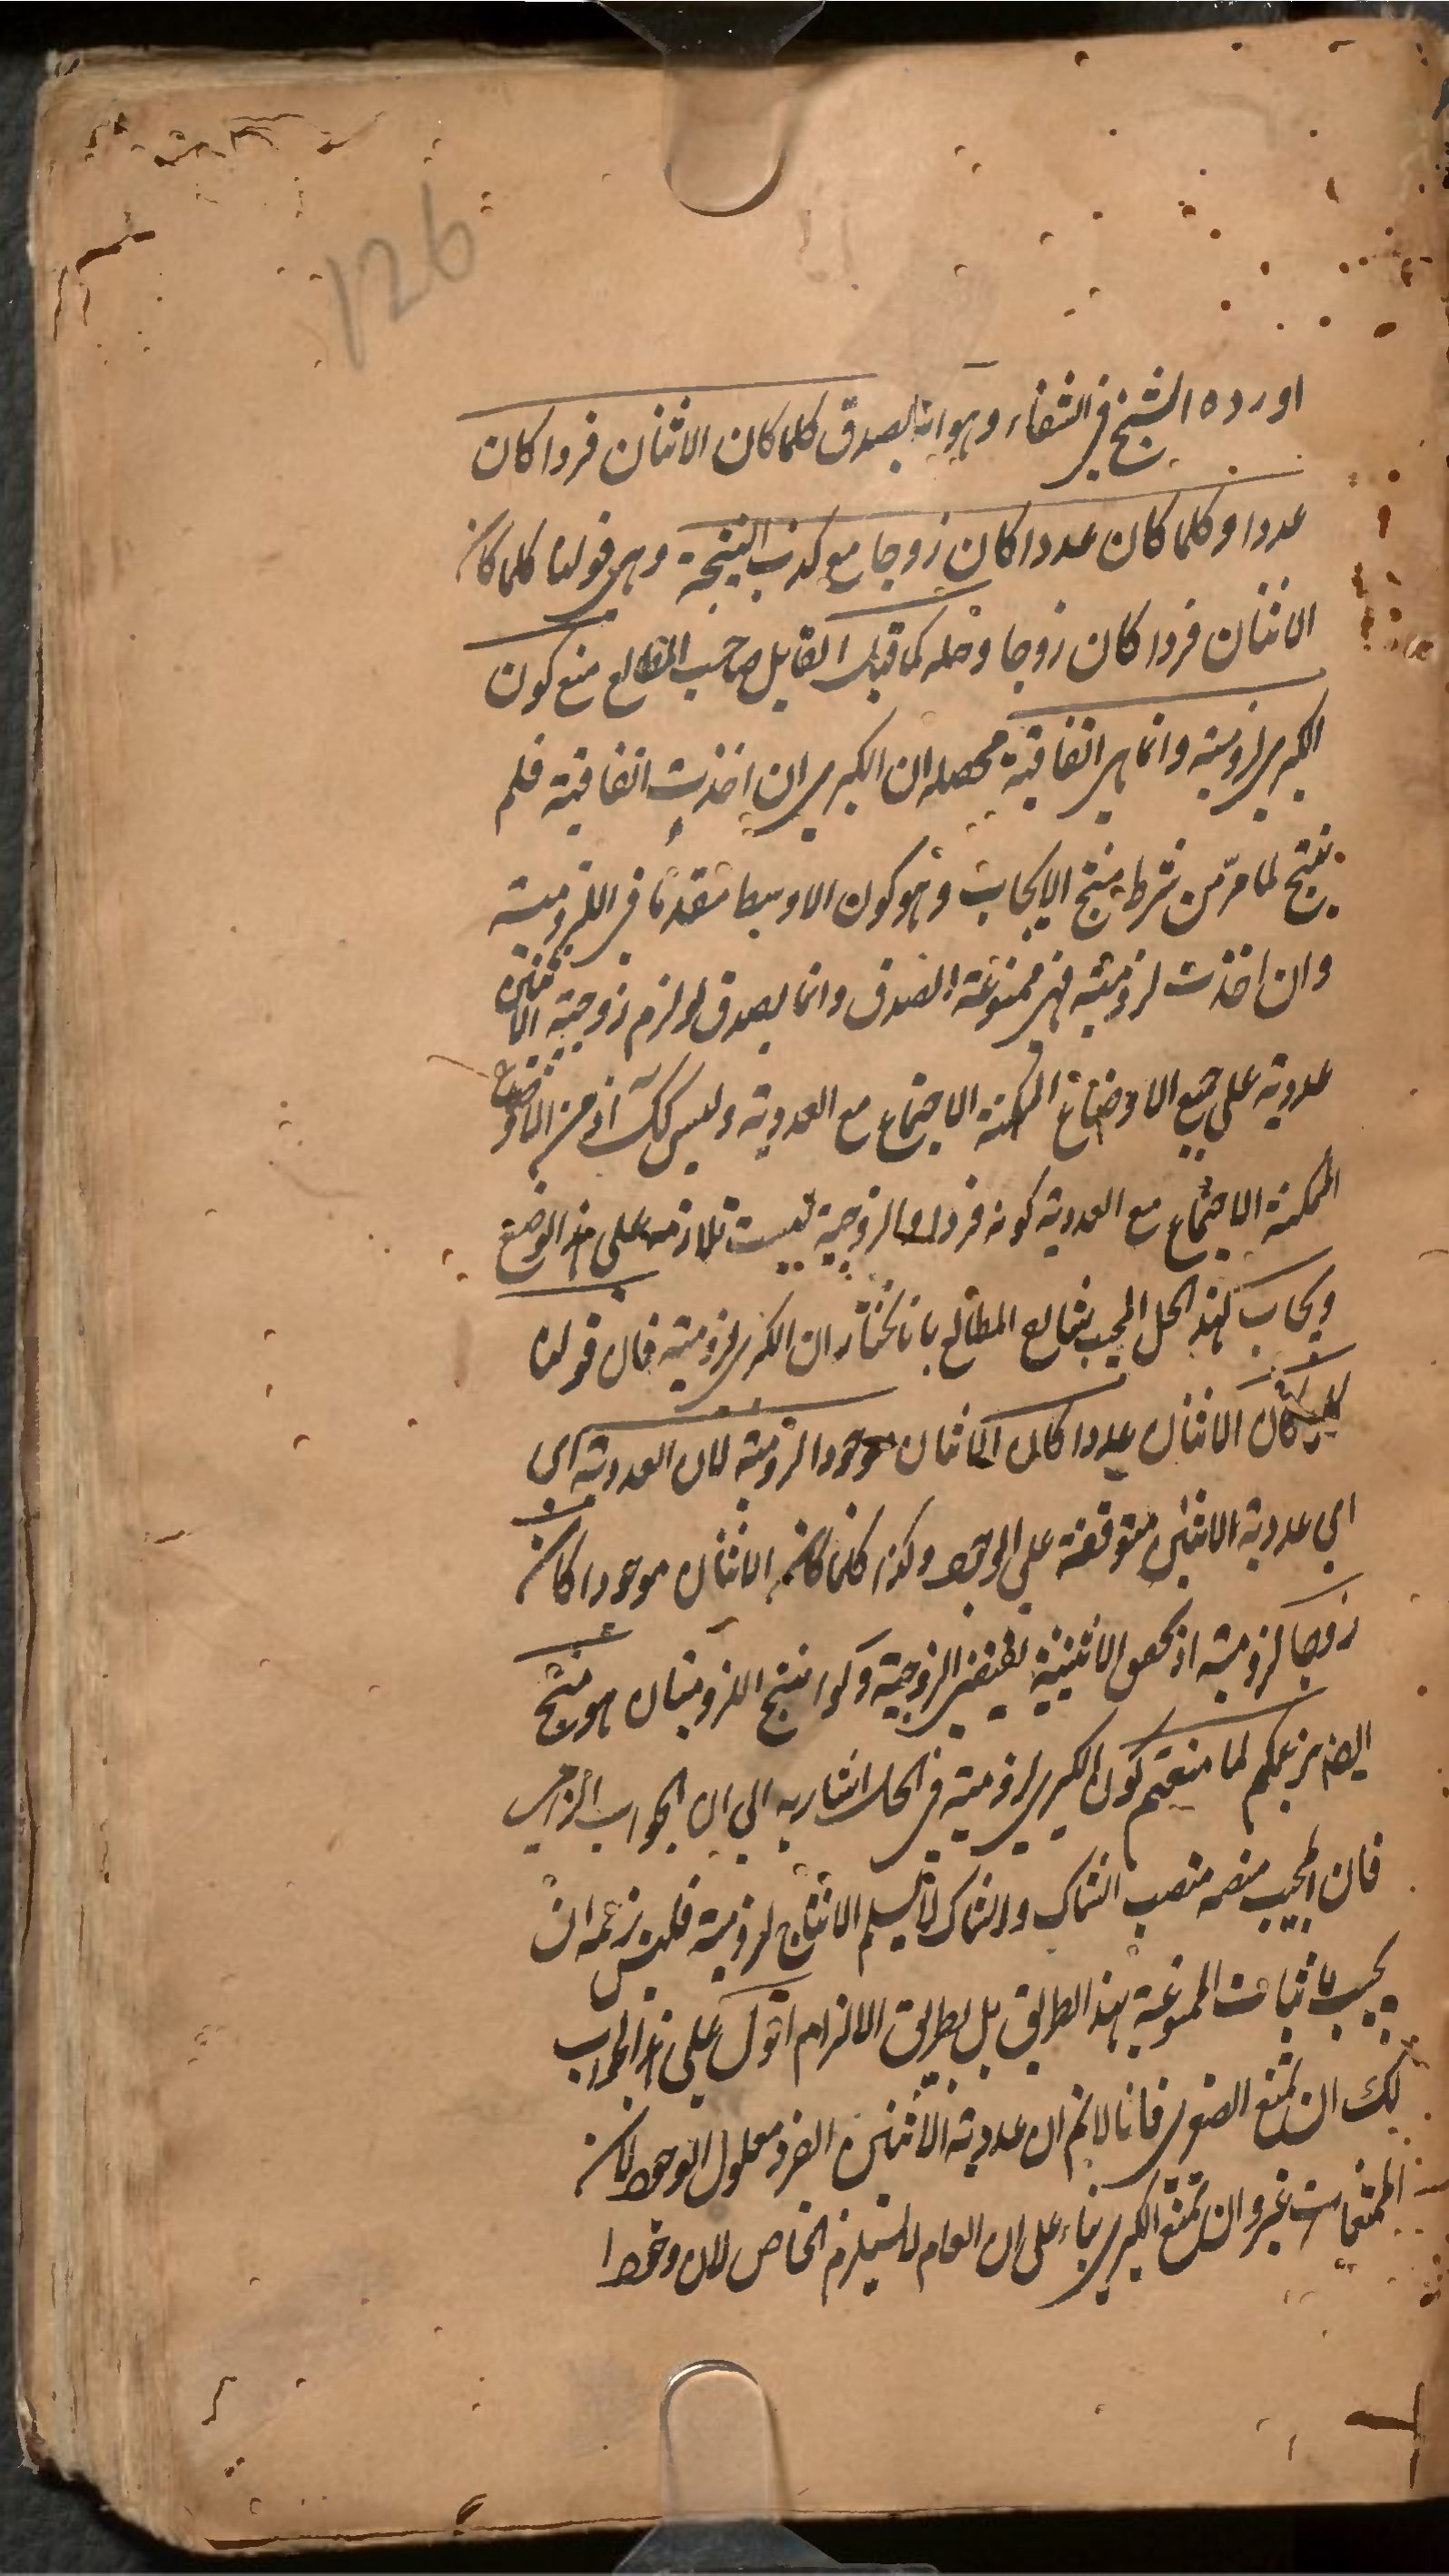 126
اورده الشيخ في الشفاء وهو انه يصدق كلما كان الاثنان فردا كان
عددا وكلما كان عددا كان زوجا مع كذب النتيجة وهي قولنا كلما كان
الاثنان فردا كان زوجا وحله كما قيل القايل صاحب المطالع منع كون
الكبرى لزومية وانما هي اتفاقية محصله ان الكبرى ان اخذت اتفاقية فلم
ينتج لما مرّ من شرط منتج الايجاب وهو كون الاوسط مقدما في اللزومية
وان اخذت لزومية فهي ممنوعة الصدق وانما يصدق لو لزم زوجية الاثنين
عددية على جميع الاوضاع الممكنة الاجتماع مع العددية وليس كك اذ من الاوضاع
الممكنة الاجتماع مع العددية كونه فردا والزوجية ليست تلازمه على هذا الوضع
ويجاب لهذا الحل المجيب شارح المطالع بانا نختار ان الكبرى لزومية فان قولنا
كلما كان الاثنان عددا كان الاثنان موجودا لزومية لان العددية اى
اى عددية الاثنين متوقفة على الوجود وكذا كلما كان الاثنان موجودا كان
زوجا لزومية اذ نحو الاثنينية يقتضى الزوجية وكذا ينتج اللزوميتان هو منتج
ايضا بزعمكم لما منعتم كون الكبرى لزومية في الحل اشار به الى ان الجواب الزامى
فان المجيب منصبه منصب الشاك والشاك لا يسلم الانتاج لزومية فليس زعمه ان
يجيب باثبات الممنوعة بهذا الطريق بل بطريق الالزام اقول على هذا الجواب
لك ان تمنع الصغرى فانا لا نم ان عددية الاثنين الفرد معلول الوجود لان
الممتنعات غير وان تمنع الكبرى بناء على ان العام لا يستلزم الخاص لان وجود ا